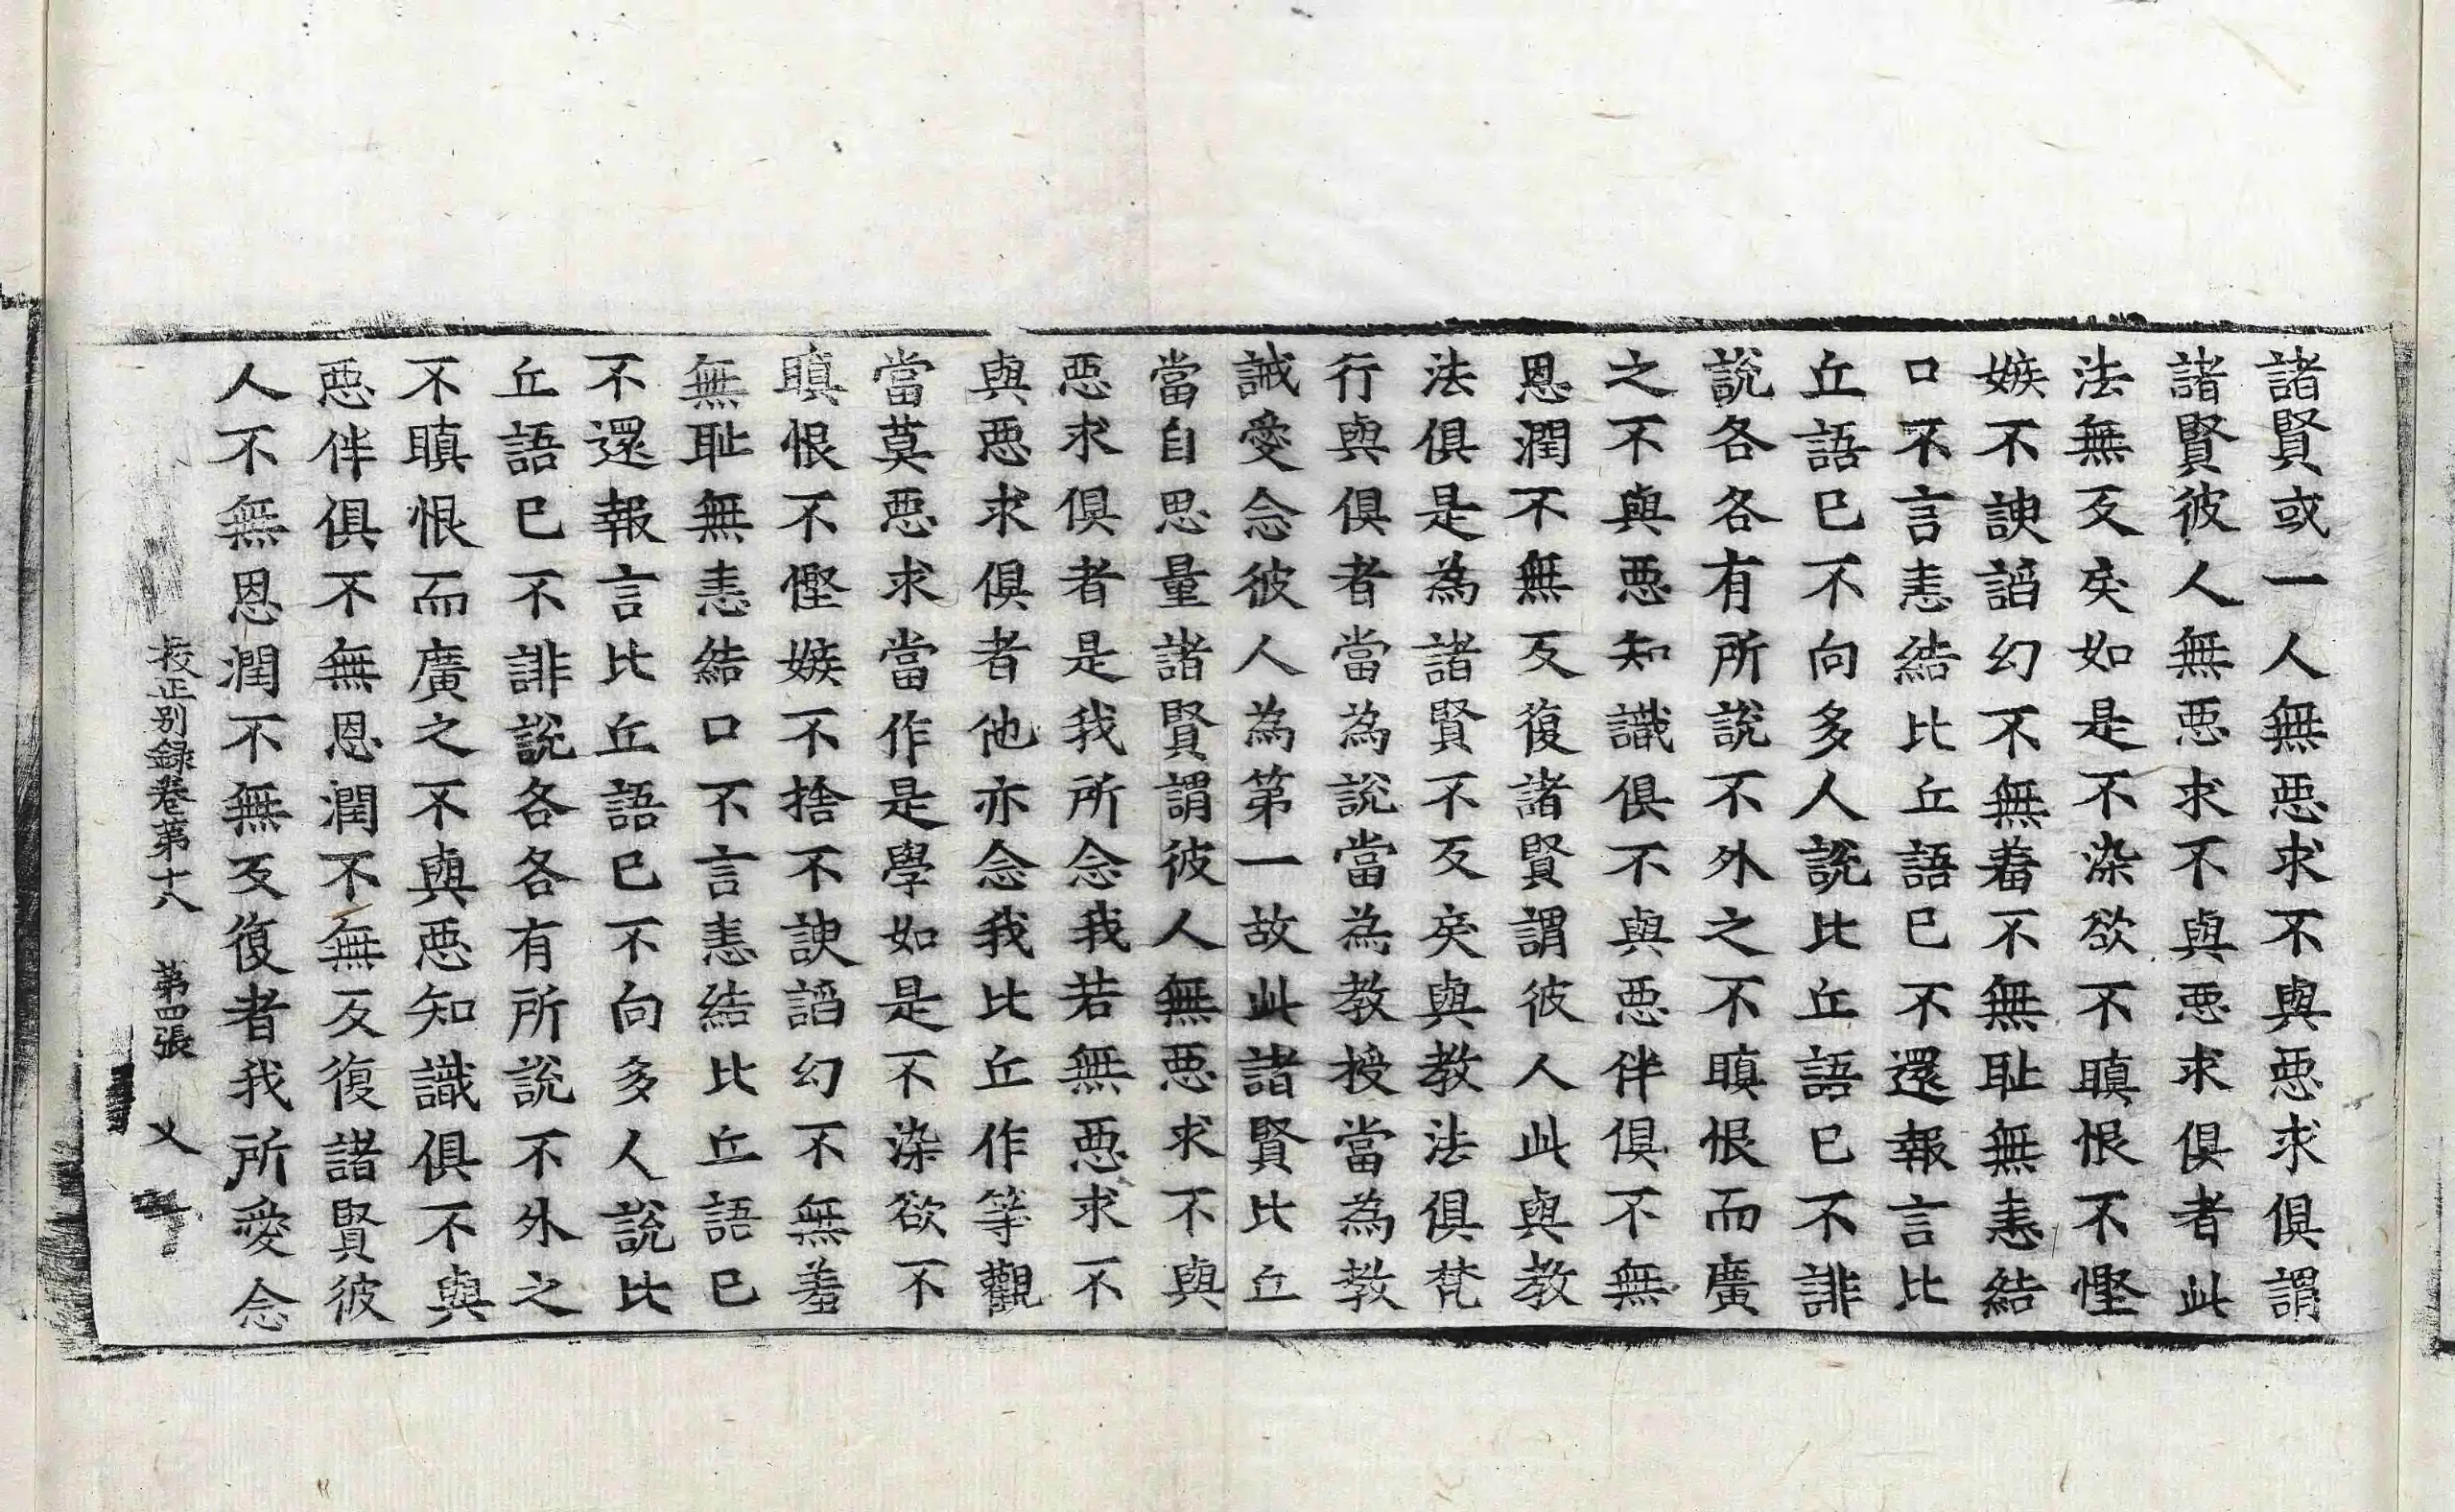 諸賢或一人無惡求不與惡求俱謂
諸賢彼人無惡求不與惡求俱者此
法無反戾如是不染欲不瞋恨不慳
嫉不諛謟幻不無羞不無耻無恚結
口不言恚結比丘語已不還報言比
丘語已不向多人說比丘語已不誹
說各各有所說不外之不瞋恨而廣
之不與惡知識俱不與惡伴俱不無
恩潤不無反復諸賢謂彼人此與教
法俱是為諸賢不反戾與教法俱梵
行與俱者當為說當為教授當為教
誡愛念彼人為第一故此諸賢比丘
當自思量諸賢謂彼人無惡求不與
惡求俱者是我所念我若無惡求不
與惡求俱者他亦念我比丘作等觀
當莫惡求當作是學如是不染欲不
瞋恨不慳嫉不捨不諛謟幻不無羞
無耻無恚結口不言恚結比丘語已
不還報言比丘語已不向多人說比
丘語已不誹說各各有所說不外之
不瞋恨而廣之不與惡知識俱不與
惡伴俱不無恩潤不無反復諸賢彼
人不無恩潤不無反復者我所愛念
校正別錄卷第十八 第四張 乂